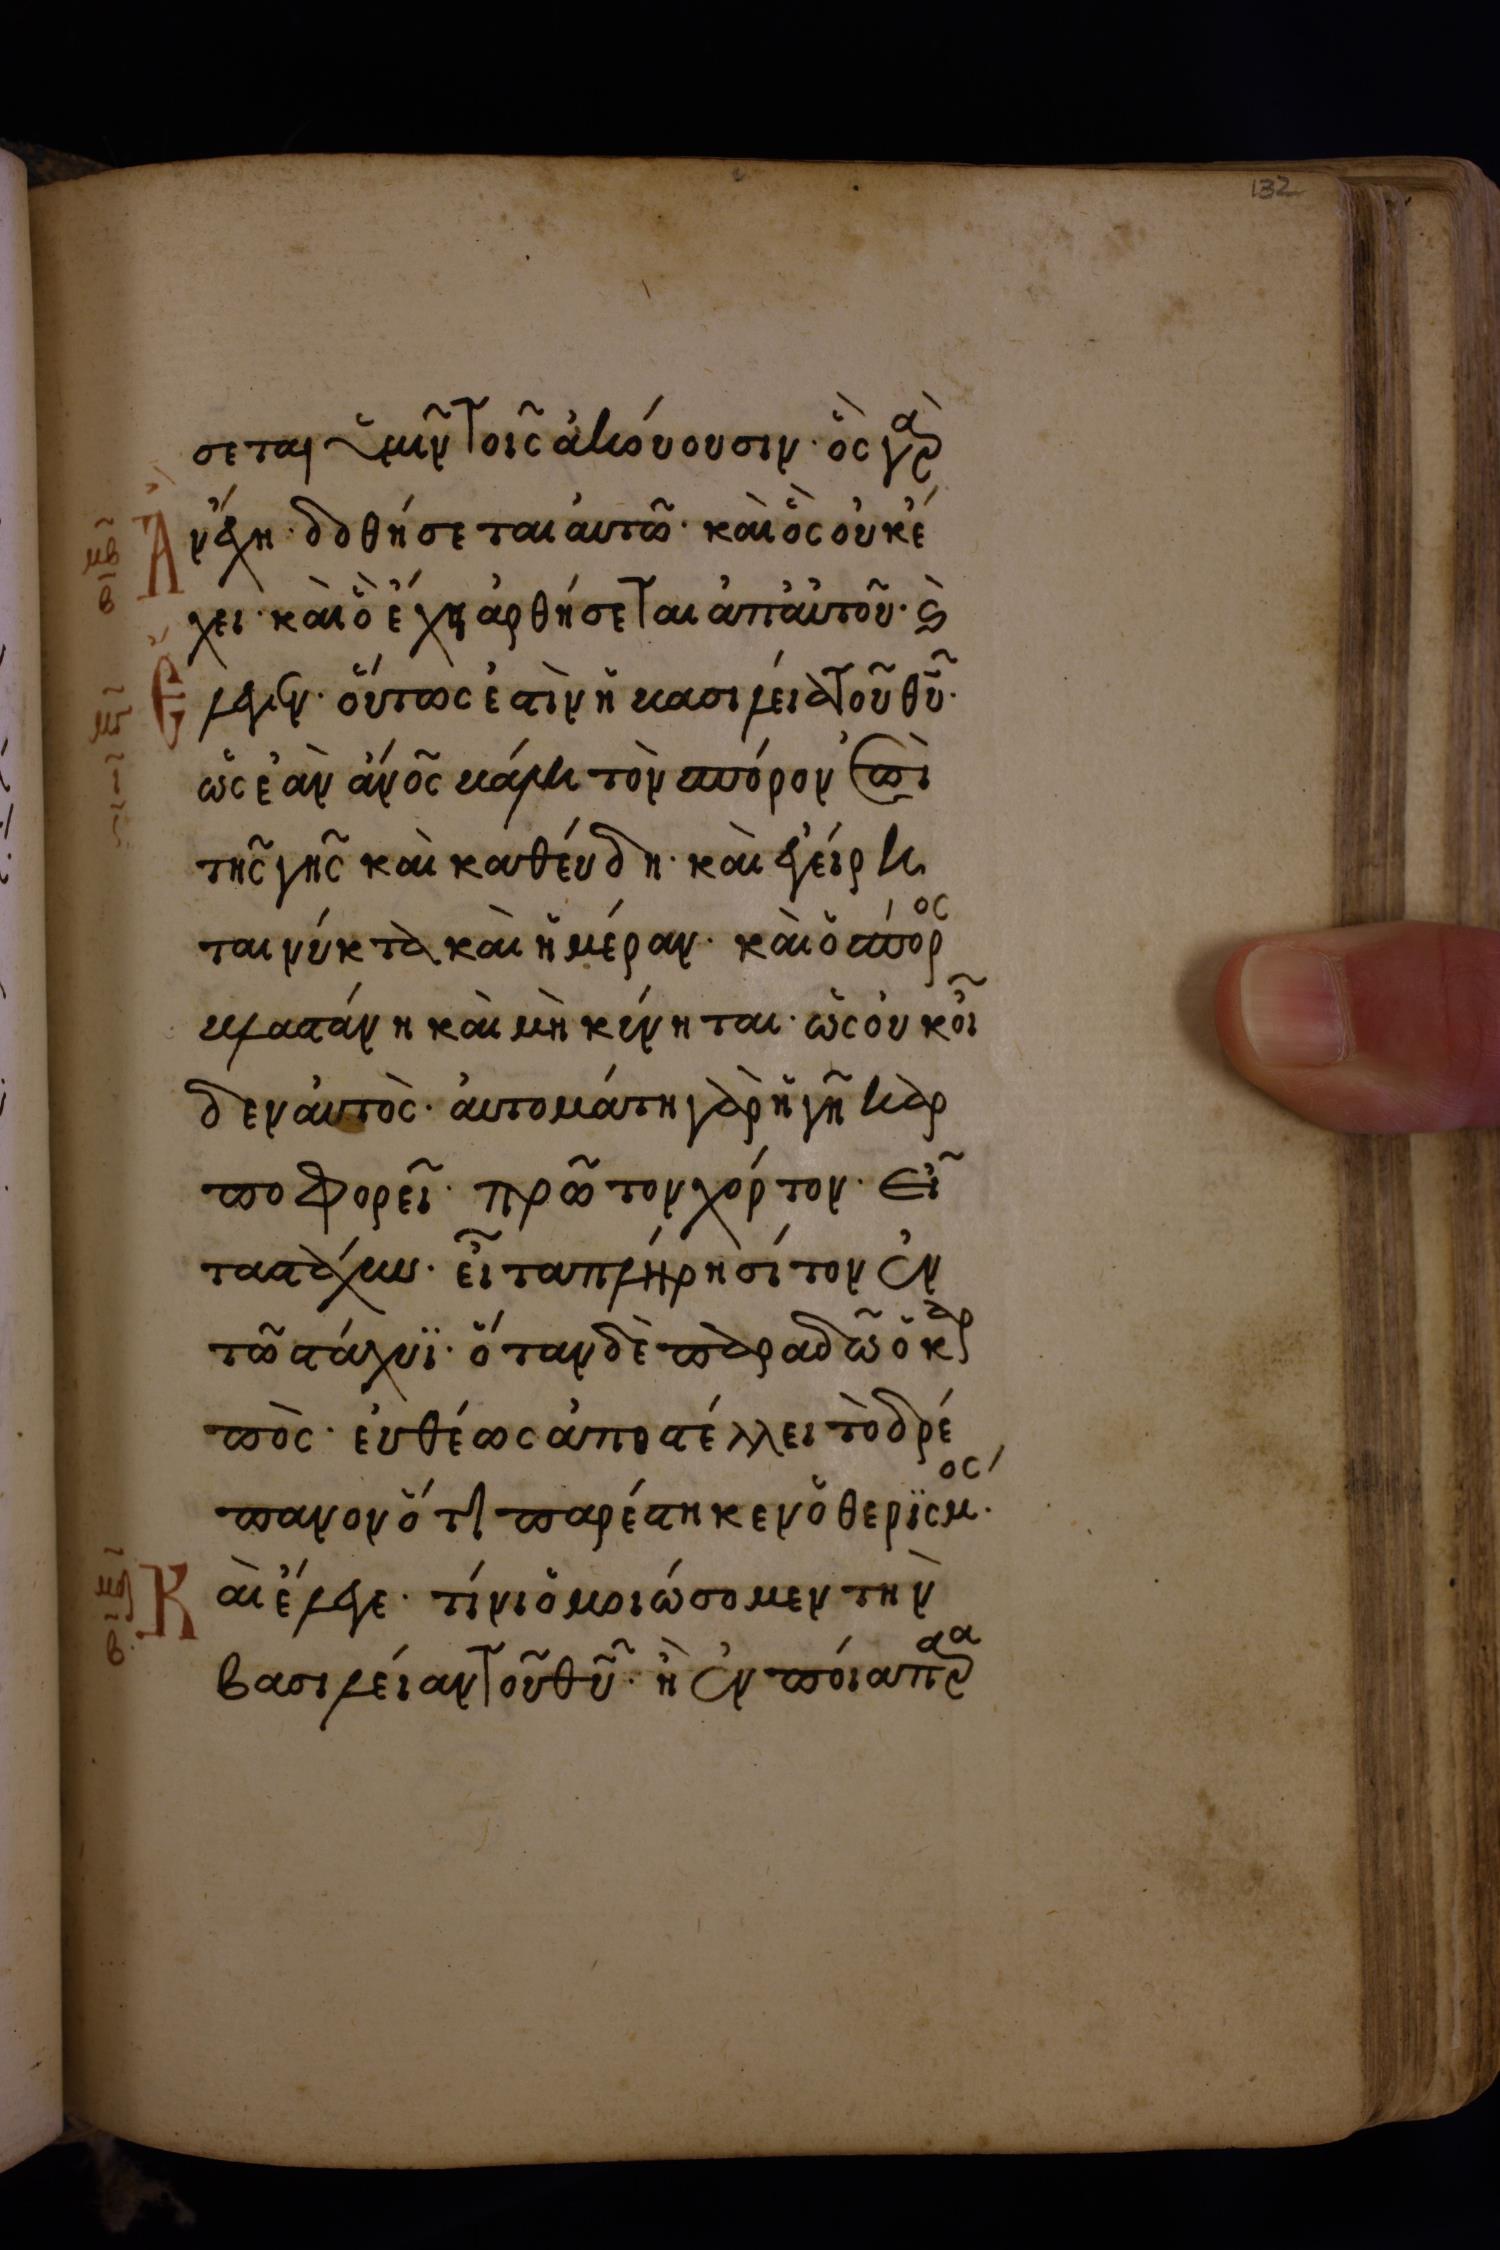 132
σεται ὑμῖν τοῖς ἀκόυουσιν· ὃς γὰρ
ἂν ἔχη· δοθήσεται ἀυτῶ· καὶ ὃς οὐκ έ
χει· καὶ ὃ έχει ἀρθήσεται ἀπ ἀυτοῦ· Κ(αὶ)
Ἔλεγεν· ὅυτως ἐστὶν ἡ βασιλεία τοῦ θῦ·
ὡς ἐὰν ἄνος βάλη τὸν σπόρον ἐπὶ
τῆς γῆς καὶ καθέυδη· καὶ ἐγείρη
ται νύκτα καὶ ἡμέραν· καὶ ὁ σπόρος
βλαστάνη καὶ μηκύνηται· ὡς ὀυκ οἶ
δεν ἀυτὸς· ἀυτομάτη γὰρ ἡ γῆ καρ
ποφορεῖ· πρῶτον χόρτον· εἶ
τα στάχυν· εἶτα πλήρη σίτον ἐν
τῶ στάχυϊ· ὅταν δὲ παραδῶ ὁ καρ
πὸς· ἐυθέως ἀποστέλλει τὸ δρέ
πανον ὅτι παρέστηκεν ὁ θερϊσμός·
Καὶ έλεγε· τίνι ὁμοιώσομεν τὴν
βασιλείαν τοῦ θῦ· ἢ ἐν ποία παρα